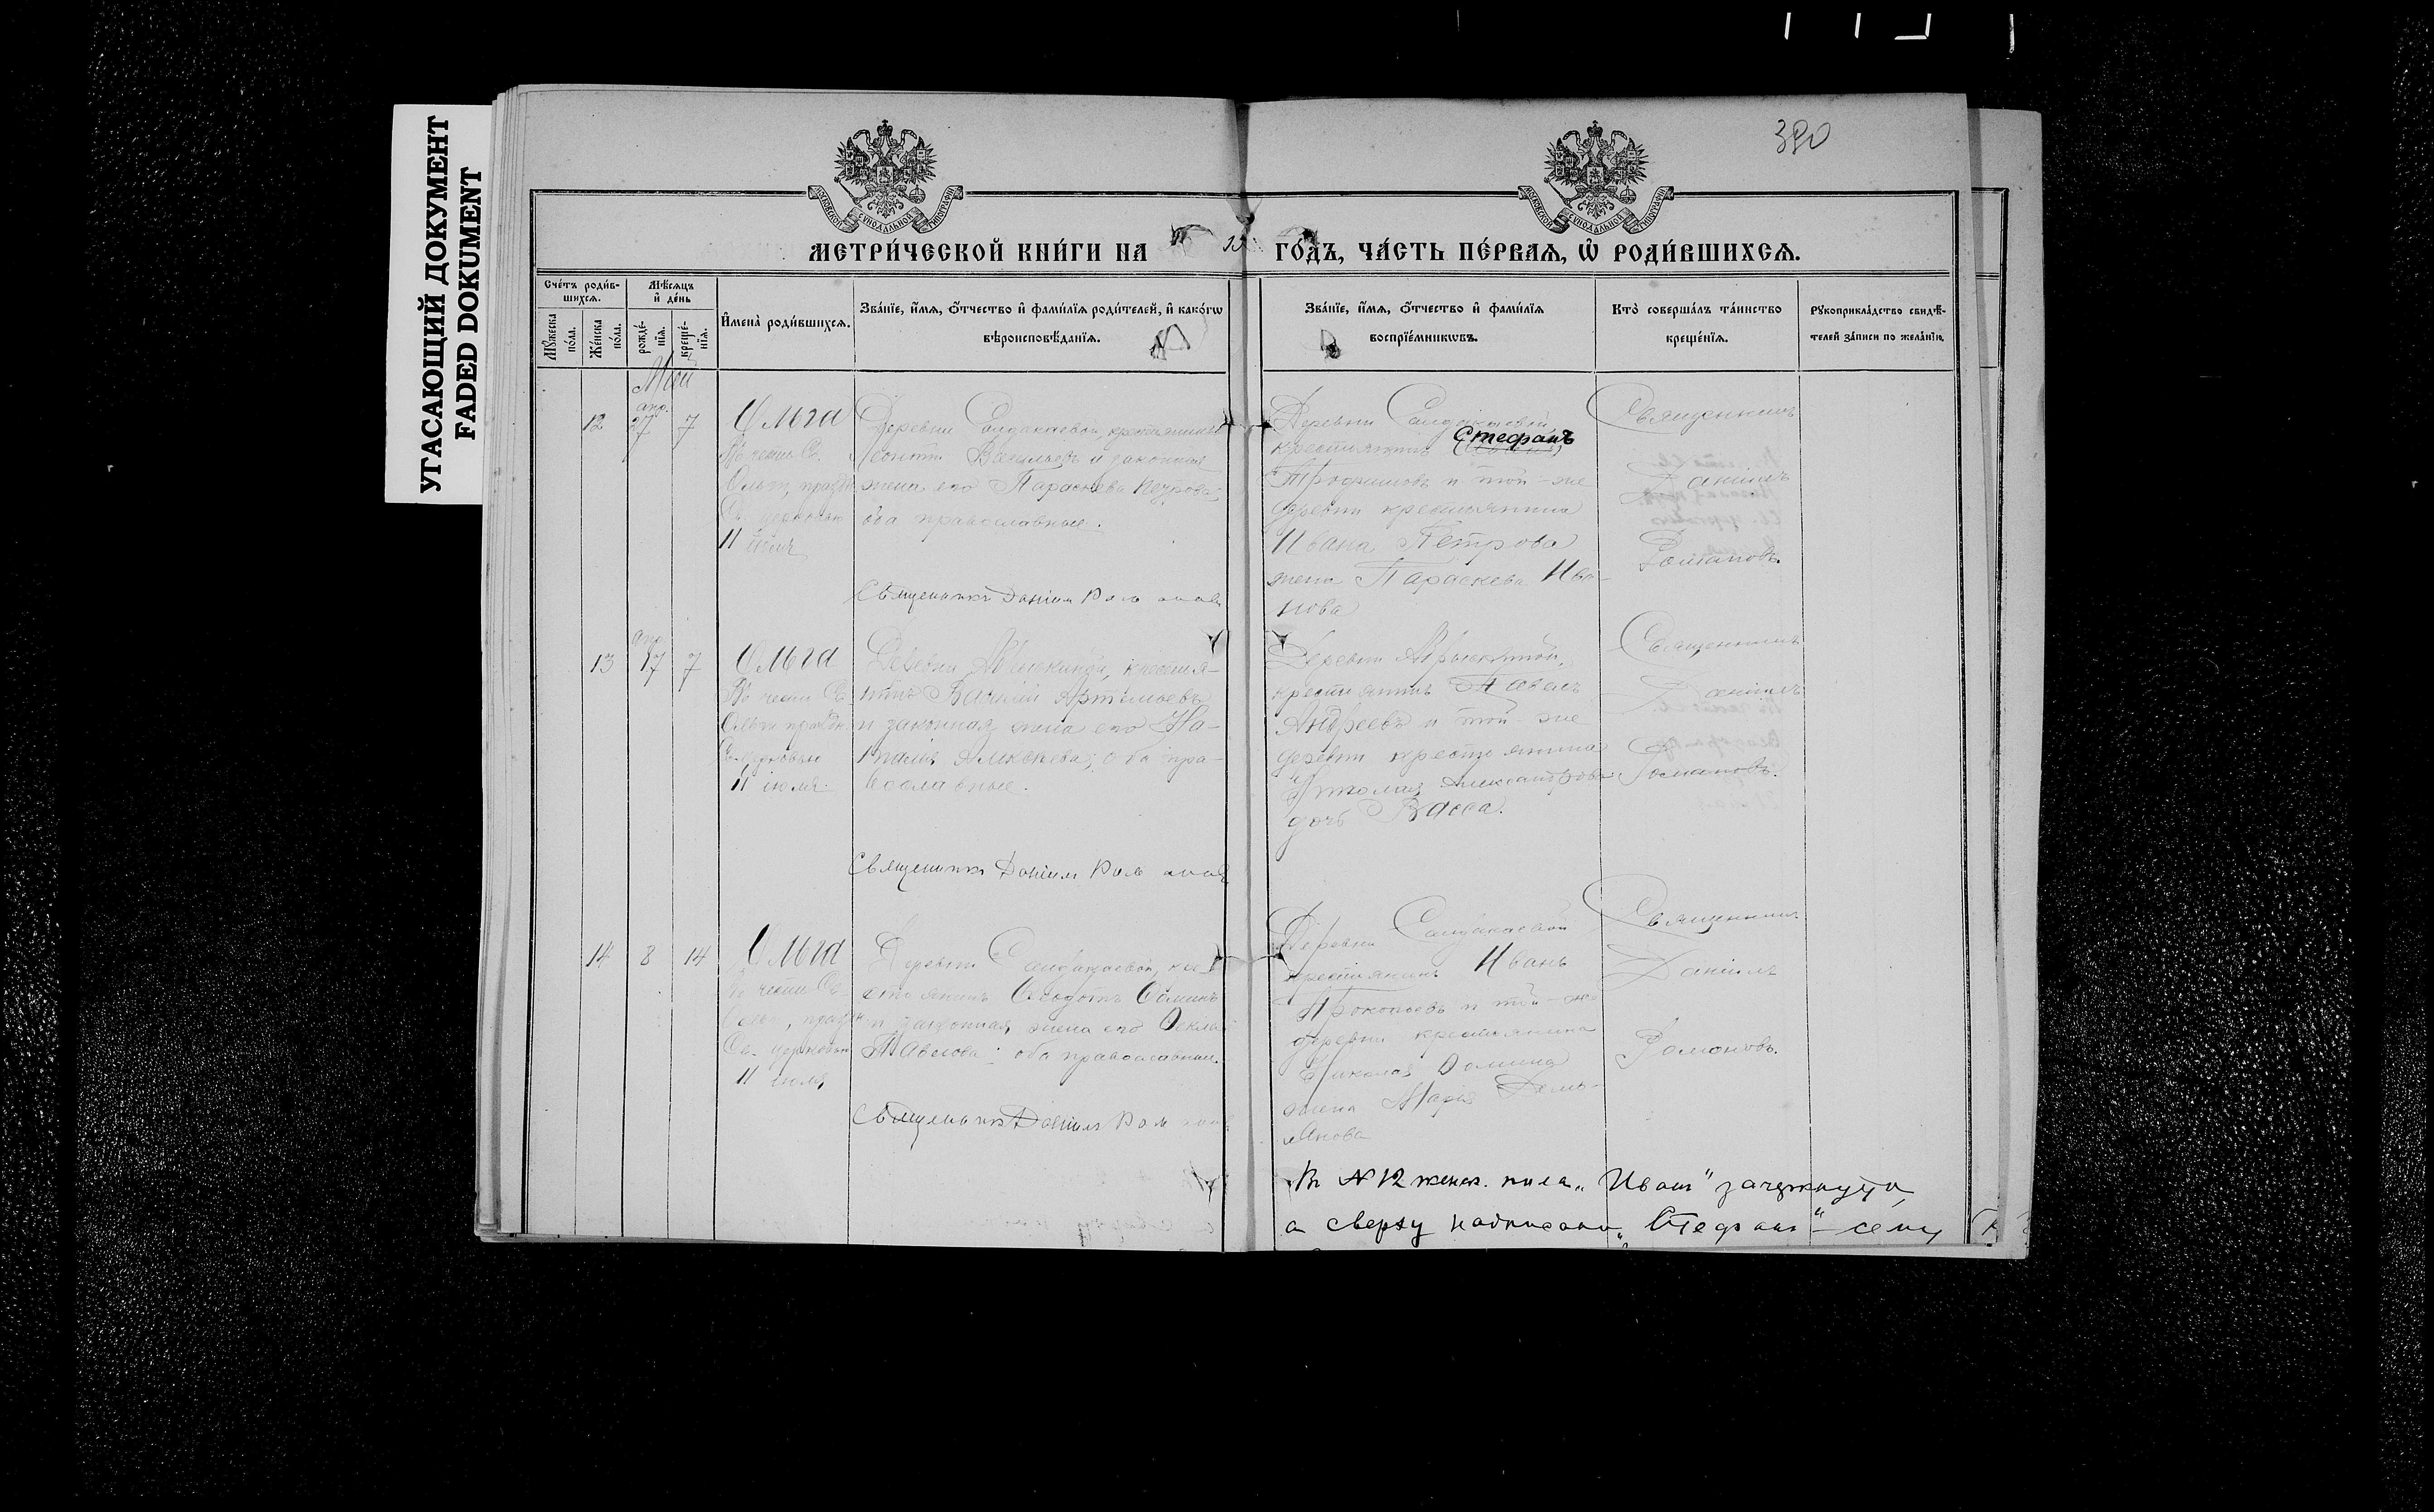 УГАСАЮЩИЙ ДОКУМЕНТ
FADED DOKUMENT
390
МОСКОВСКОЙ СѴНОДАЛЬНОЙ ТИПОГРАФІИ
МОСКОВСКОЙ СѴНОДАЛЬНОЙ ТИПОГРАФІИ
МЕТРИ́ЧЕСКОЙ КНИ́ГИ НА ГО́ДЪ, ЧА́СТЬ ПЕ́РВАѦ, Ѽ РОДИ́ВШИХСѦ.
Сче́тъ роди́в-
шихсѧ.
Мꙋ́жеска
по́ла.
Же́нска
по́ла.
Мѣ́сѧцъ
и҆ де́нь
рожде́-
нїѧ.
креще́-
нїѧ.
И҆мена̀ роди́вшихсѧ.
Зва́нїе, и҆́мѧ, ѻ҆́тчество и҆ фамилїѧ роди́телей, и҆ како́гѡ
вѣроисповѣ́данїѧ.
Зва́нїе, и҆́мѧ, ѻ҆́тчество и҆ фамилїѧ
воспрїе́мникѡвъ.
Кто̀ соверша́лъ та́инство
креще́нїѧ.
Рꙋкоприкла́дство свидѣ́-
телей за́писи по жела́нїю.
Май
12
апр.
27
7
Ольга
Въ честь Св.
Ольги, праздн.
Св. церковью
11 іюля
Деревни Сандакаевой, крестьянинъ
Леонтій Васильевъ и законная
жена его Параскева Петрова;
оба православные.
Священникъ Даніилъ Романовъ
Деревни Сандакаевой
крестьянинъ Стефанъ
Трофимовъ и той-же
деревни крестьянина
Ивана Петрова
жена Параскева Ива-
нова
Священникъ
Даніилъ
Романовъ.
13
апр.
17
7
Ольга
Въ честь Св.
Ольги праздн.
Св. церковью
11 іюля.
Деревни крестья-
нинъ Василій Артемьевъ
и законная жена его На-
талія Алексѣева; оба пра-
вославные.
Священникъ Даніилъ Романовъ
Деревни
крестьянинъ Павелъ
Андреевъ и той-же
деревни крестьянина
Николая Александрова
дочь Васса.
Священникъ
Даніилъ
Романовъ.
14
8
14
Ольга
Въ честь Св.
Ольги, праздн.
Св. церковью
11 іюля
Деревни Сандакаевой, кре-
стьянинъ Ѳеодотъ Ѳоминъ
и законная жена его Ѳекла
Павлова; оба православные.
Священникъ Даніилъ Романовъ
Деревни Сандакаевой
крестьянинъ Иванъ
Прокопьевъ и той-же
деревни крестьянина
Николая Ѳомина
жена Марія Демь-
янова
Священникъ
Даніилъ
Романовъ.
Въ № 12 женск. пола „Иванъ“ зачеркнуто,
а сверху надписано „Стефанъ“ – сему